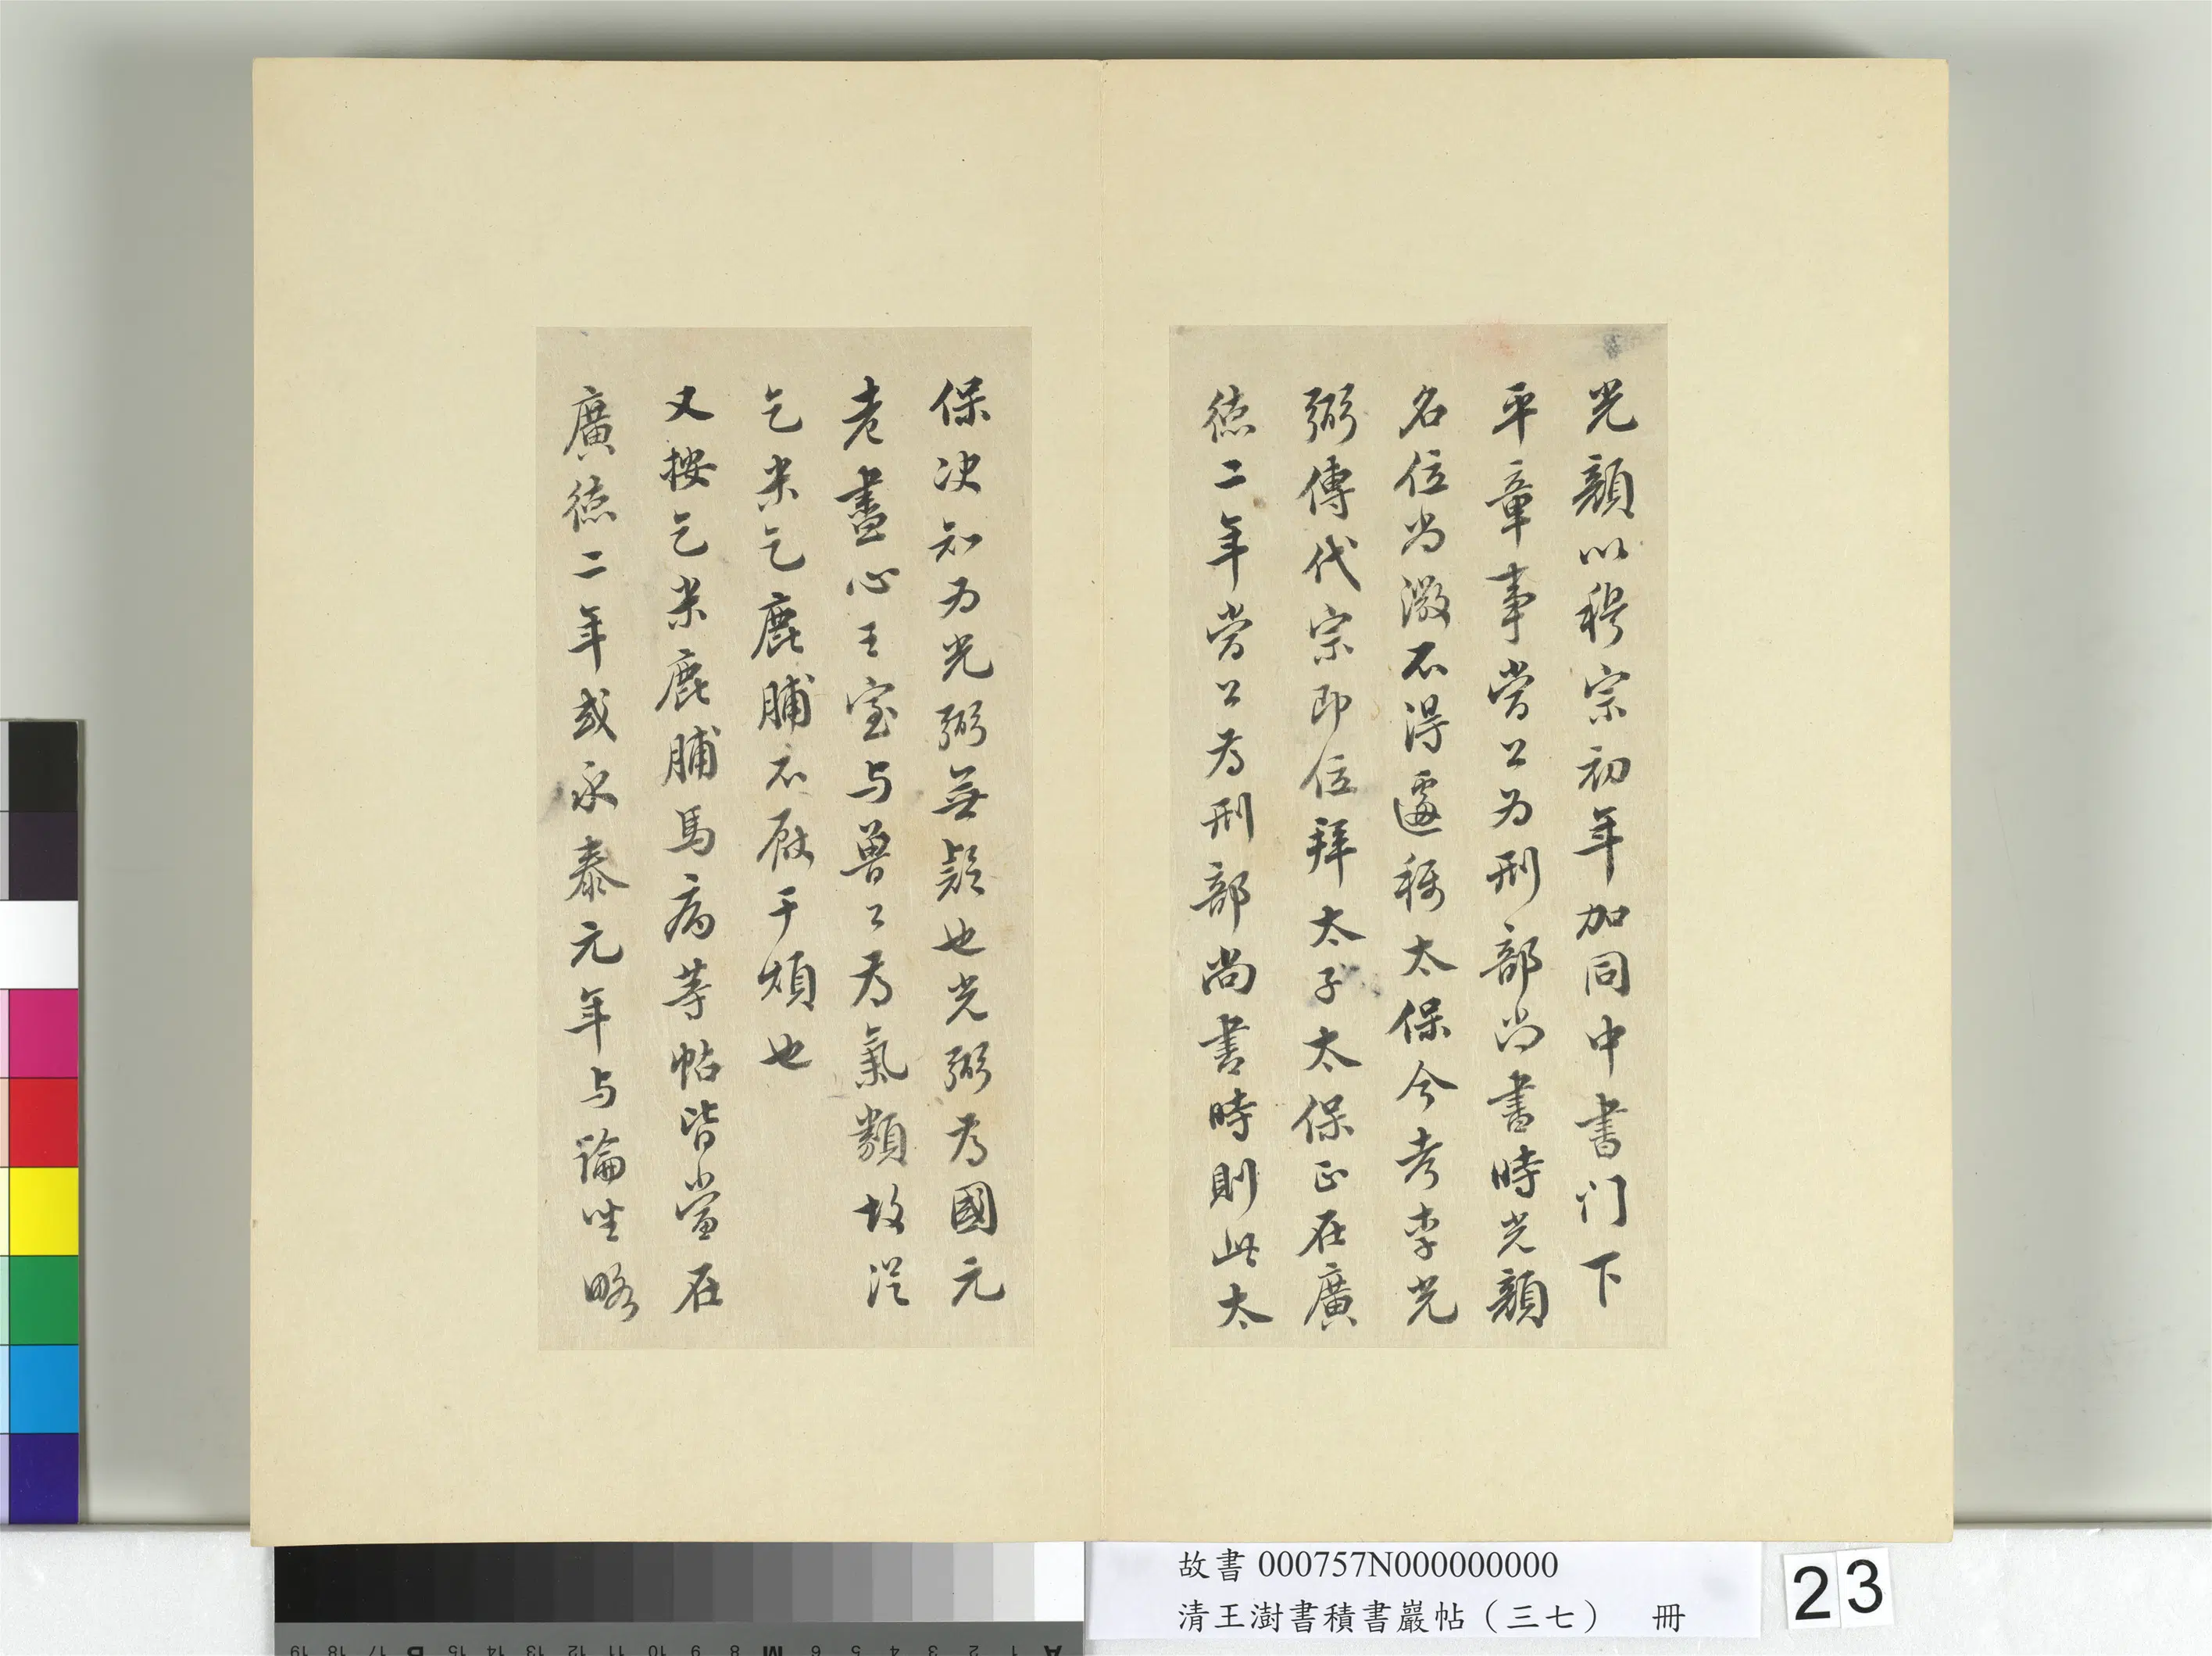 光顏以穆宗初年加同中書门下
平章事當公为刑部尚書時光顏
名位尚微不得遽稱太保今考李光
弼傳代宗即位拜太子太保正在廣
德二年當公為刑部尚書時則此太
保决知为光弼無疑也光弼為國元
老盡心王室与魯公為氣類故從
乞米乞鹿脯不厭干煩也
又按乞米鹿脯馬病等帖皆當在
廣德二年或永泰元年与論坐略
故書 000757N000000000
清王澍書積書巖帖（三七） 冊
23
19 18 17 B 16 15 14 13 12 11 10 9 8 M 7 6 5 4 3 2 1 A